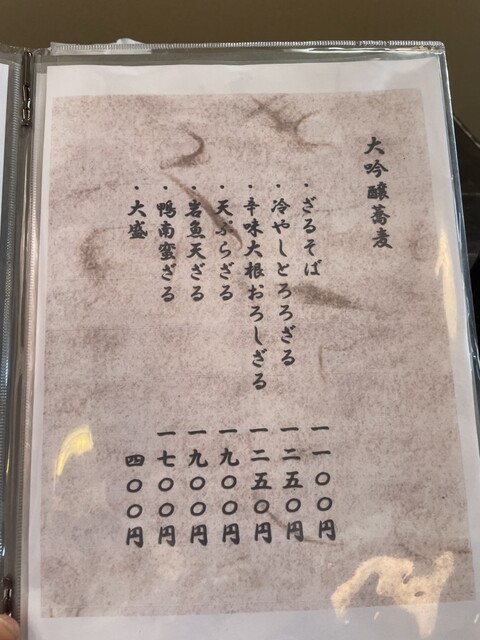 大吟醸蕎麦
・ざるそば 一一〇〇円
・冷やしとろろざる 一二五〇円
・辛味大根おろしざる 一二五〇円
・天ぷらざる 一九〇〇円
・岩魚天ざる 一九〇〇円
・鴨南蛮ざる 一七〇〇円
・大盛 四〇〇円